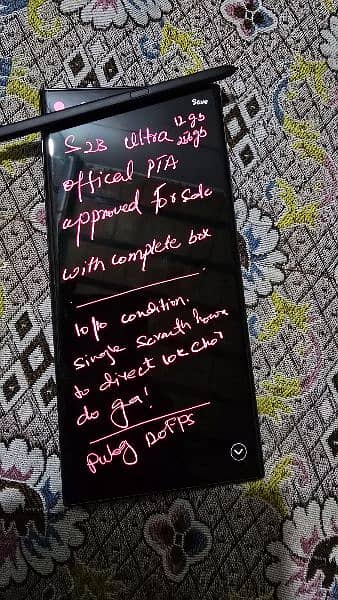 Save
S23 ultra 12gb
256gb
offical PTA
approved for sale
with complete box
10/10 condition.
single scratch howa
to direct 10k chor
do ga!
pubg 120FPS